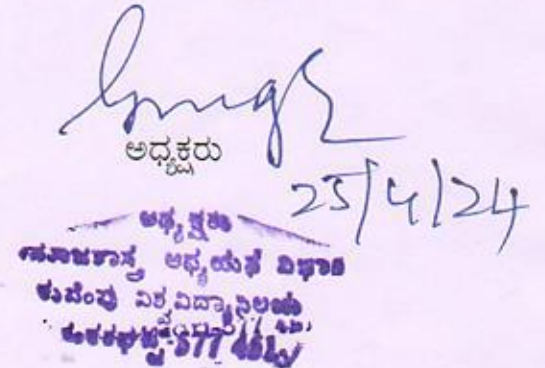 ಅಧ್ಯಕ್ಷರು
25/4/24
ಅಧ್ಯಕ್ಷರು
ಸಮಾಜಶಾಸ್ತ್ರ ಅಧ್ಯಯನ ವಿಭಾಗ
ಕುವೆಂಪು ವಿಶ್ವವಿದ್ಯಾನಿಲಯ
577 451